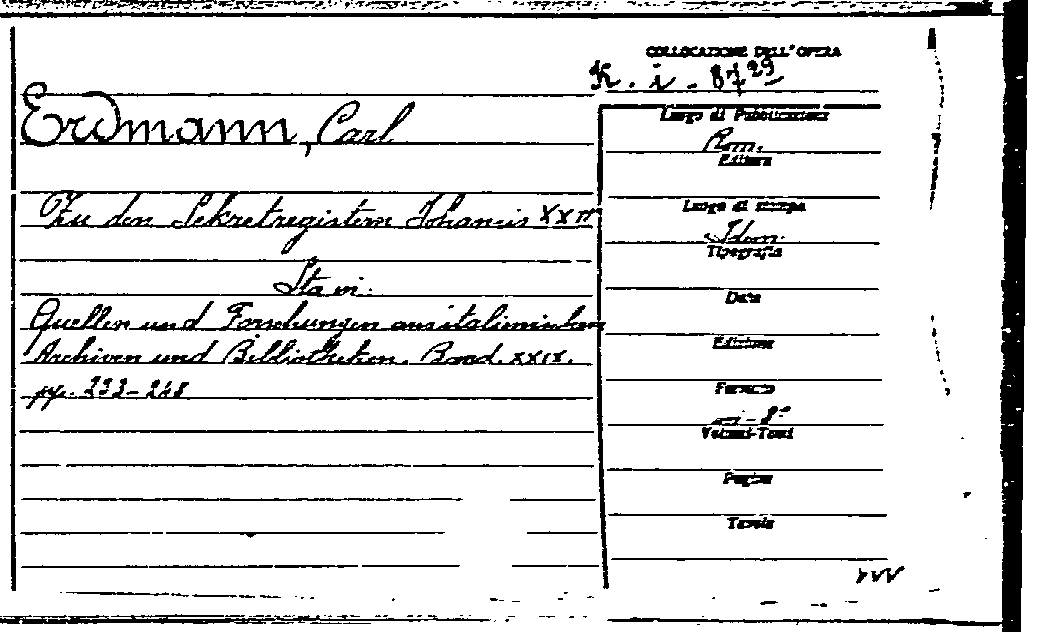 COLLOCAZIONE DELL'OPERA
K. i. - 87 29
Erdmann, Carl
Zu den Sekretregistern Johannis XXII
Sta in:
Quellen und Forschungen aus italienischen
Archiven und Bibliotheken. Band. XXIX.
pp. 233-248
Luogo di Pubblicazione
Rom.
Editore
Luogo di stampa
Idem.
Tipografia
Data
Edizione
Formato
in-8º
Volumi-Tomi
Pagine
Tavole